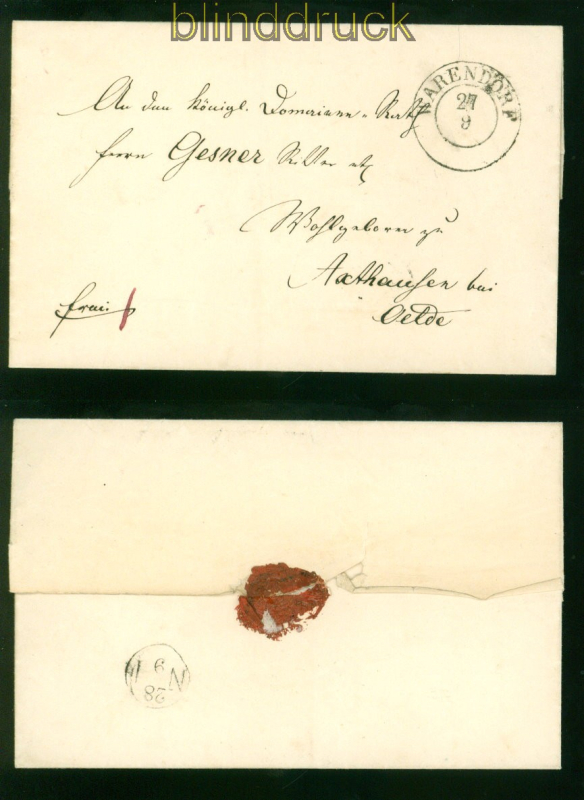 blinddruck
WARENDORF
27
9
An den Königl. Domainen-Rath
Herrn Gesner Ritter etc
Wohlgeboren zu
Axthausen bei
Oelde
franco
N
28
9